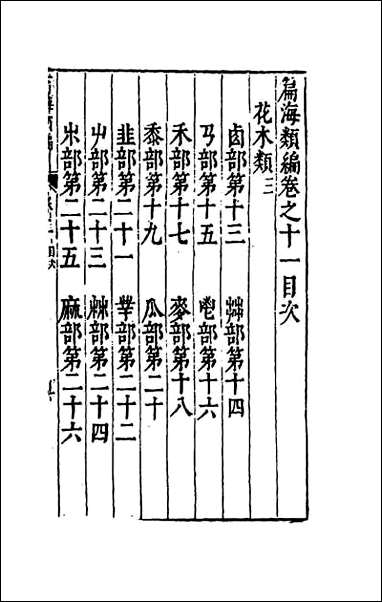 篇海類編卷之十一目次
花木類三
卤部第十三 艸部第十四
丂部第十五 鹵部第十六
禾部第十七 麥部第十八
黍部第十九 瓜部第二十
韭部第二十一 部第二十二
屮部第二十三 部第二十四
部第二十五 麻部第二十六